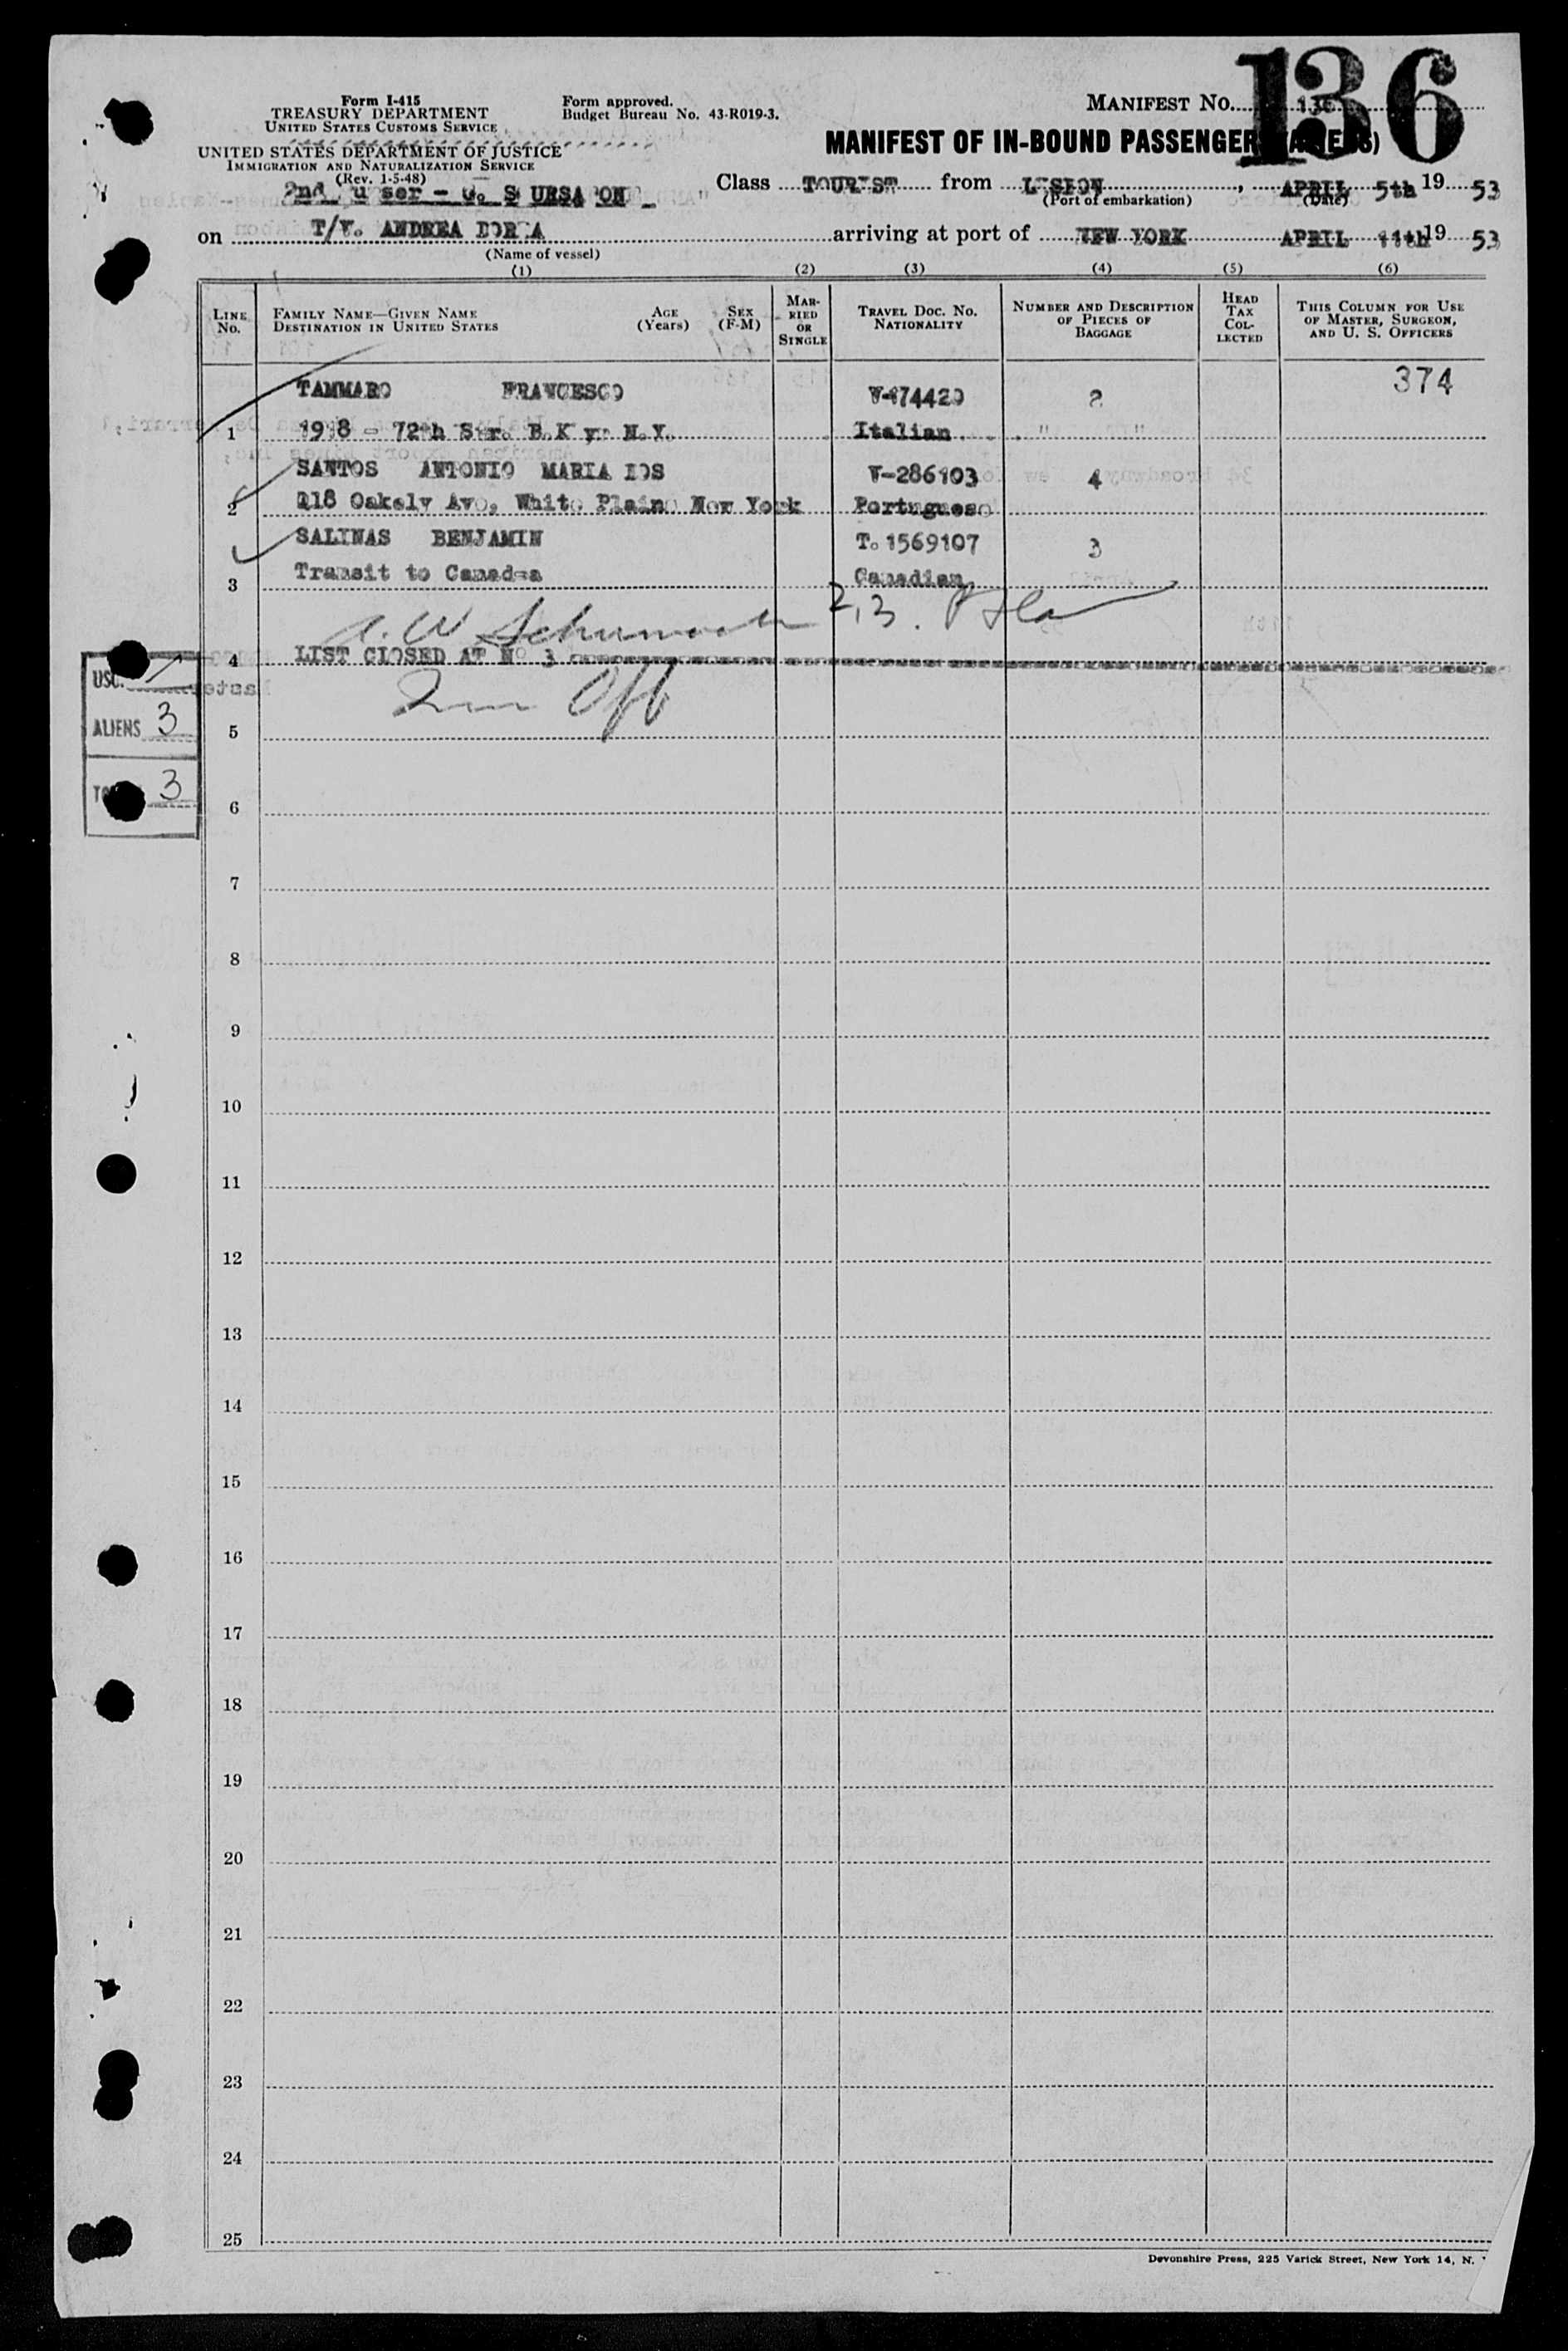 136
Form I-415
TREASURY DEPARTMENT
UNITED STATES CUSTOMS SERVICE
UNITED STATES DEPARTMENT OF JUSTICE
IMMIGRATION AND NATURALIZATION SERVICE
(Rev. 1-5-48)
Form approved.
Budget Bureau No. 43-R019-3.
MANIFEST NO. 136
MANIFEST OF IN-BOUND PASSENGERS (ALIENS)
2nd
Class TOURIST from LISBON, APRIL 5th 19 53
(Port of embarkation) (Date)
on T/V. ANDREA DORIA arriving at port of NEW YORK APRIL 11th 19 53
(Name of vessel)
(1) (2) (3) (4) (5) (6)
LINE NO.
FAMILY NAME—GIVEN NAME
DESTINATION IN UNITED STATES
AGE (Years)
SEX (F-M)
MARRIED OR SINGLE
TRAVEL DOC. NO. NATIONALITY
NUMBER AND DESCRIPTION OF PIECES OF BAGGAGE
HEAD TAX COLLECTED
THIS COLUMN FOR USE OF MASTER, SURGEON, AND U. S. OFFICERS
374
TAMMARO FRANCESCO V-174420 2
1 1918 - 72th Str. B.K yn N.Y. Italian "
SANTOS ANTONIO MARIA DOS V-286103 4
2 218 Oakely Ave, White Plain New York Portuguese
SALINAS BENJAMIN T. 1569107 3
3 Transit to Canada Canadian
2,3.
4 LIST CLOSED AT No 3
Imm Off
USC.
ALIENS 3
3
5
6
7
8
9
10
11
12
13
14
15
16
17
18
19
20
21
22
23
24
25
Devonshire Press, 225 Varick Street, New York 14, N.